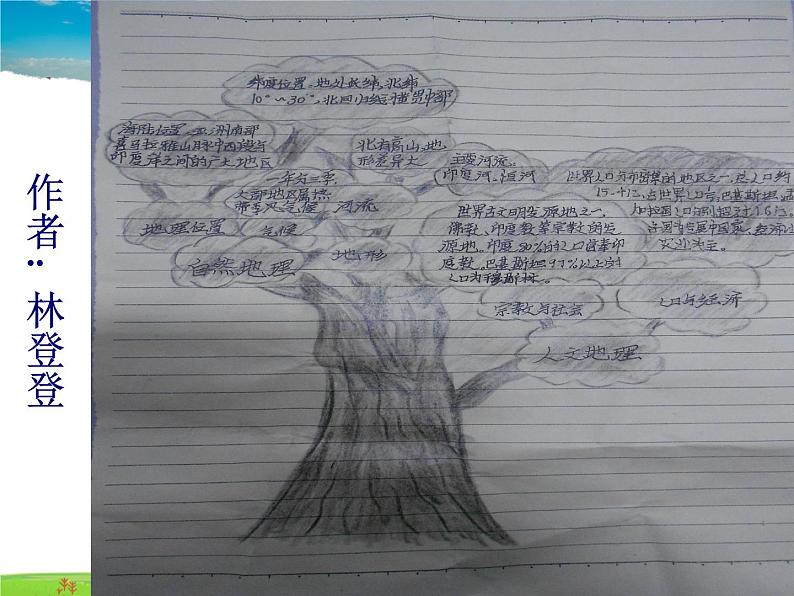 作者：林登登
纬度位置。地处低纬，北纬
10°～30°，北回归线横贯中部
海陆位置，亚洲南部
喜马拉雅山脉中西段与
印度洋之间的广大地区
北有高山，地
形差异大
主要河流。
印度河。恒河
世界人口分布稠密的地区之一，总人口约
15.4亿，占世界人口
巴基斯坦，孟
加拉国人口分别超过1.6亿。
各国为发展中国家，经济以
农业为主。
一年为三季，
大部地区属热
带季风气候
河流
世界古文明发源地之一，
佛教、印度教等宗教的发
源地。印度80%的人口信奉印
度教。巴基斯坦97%以上的
人口为穆斯林。
地理位置
气候
地形
自然地理
宗教与社会
人口与经济
人文地理